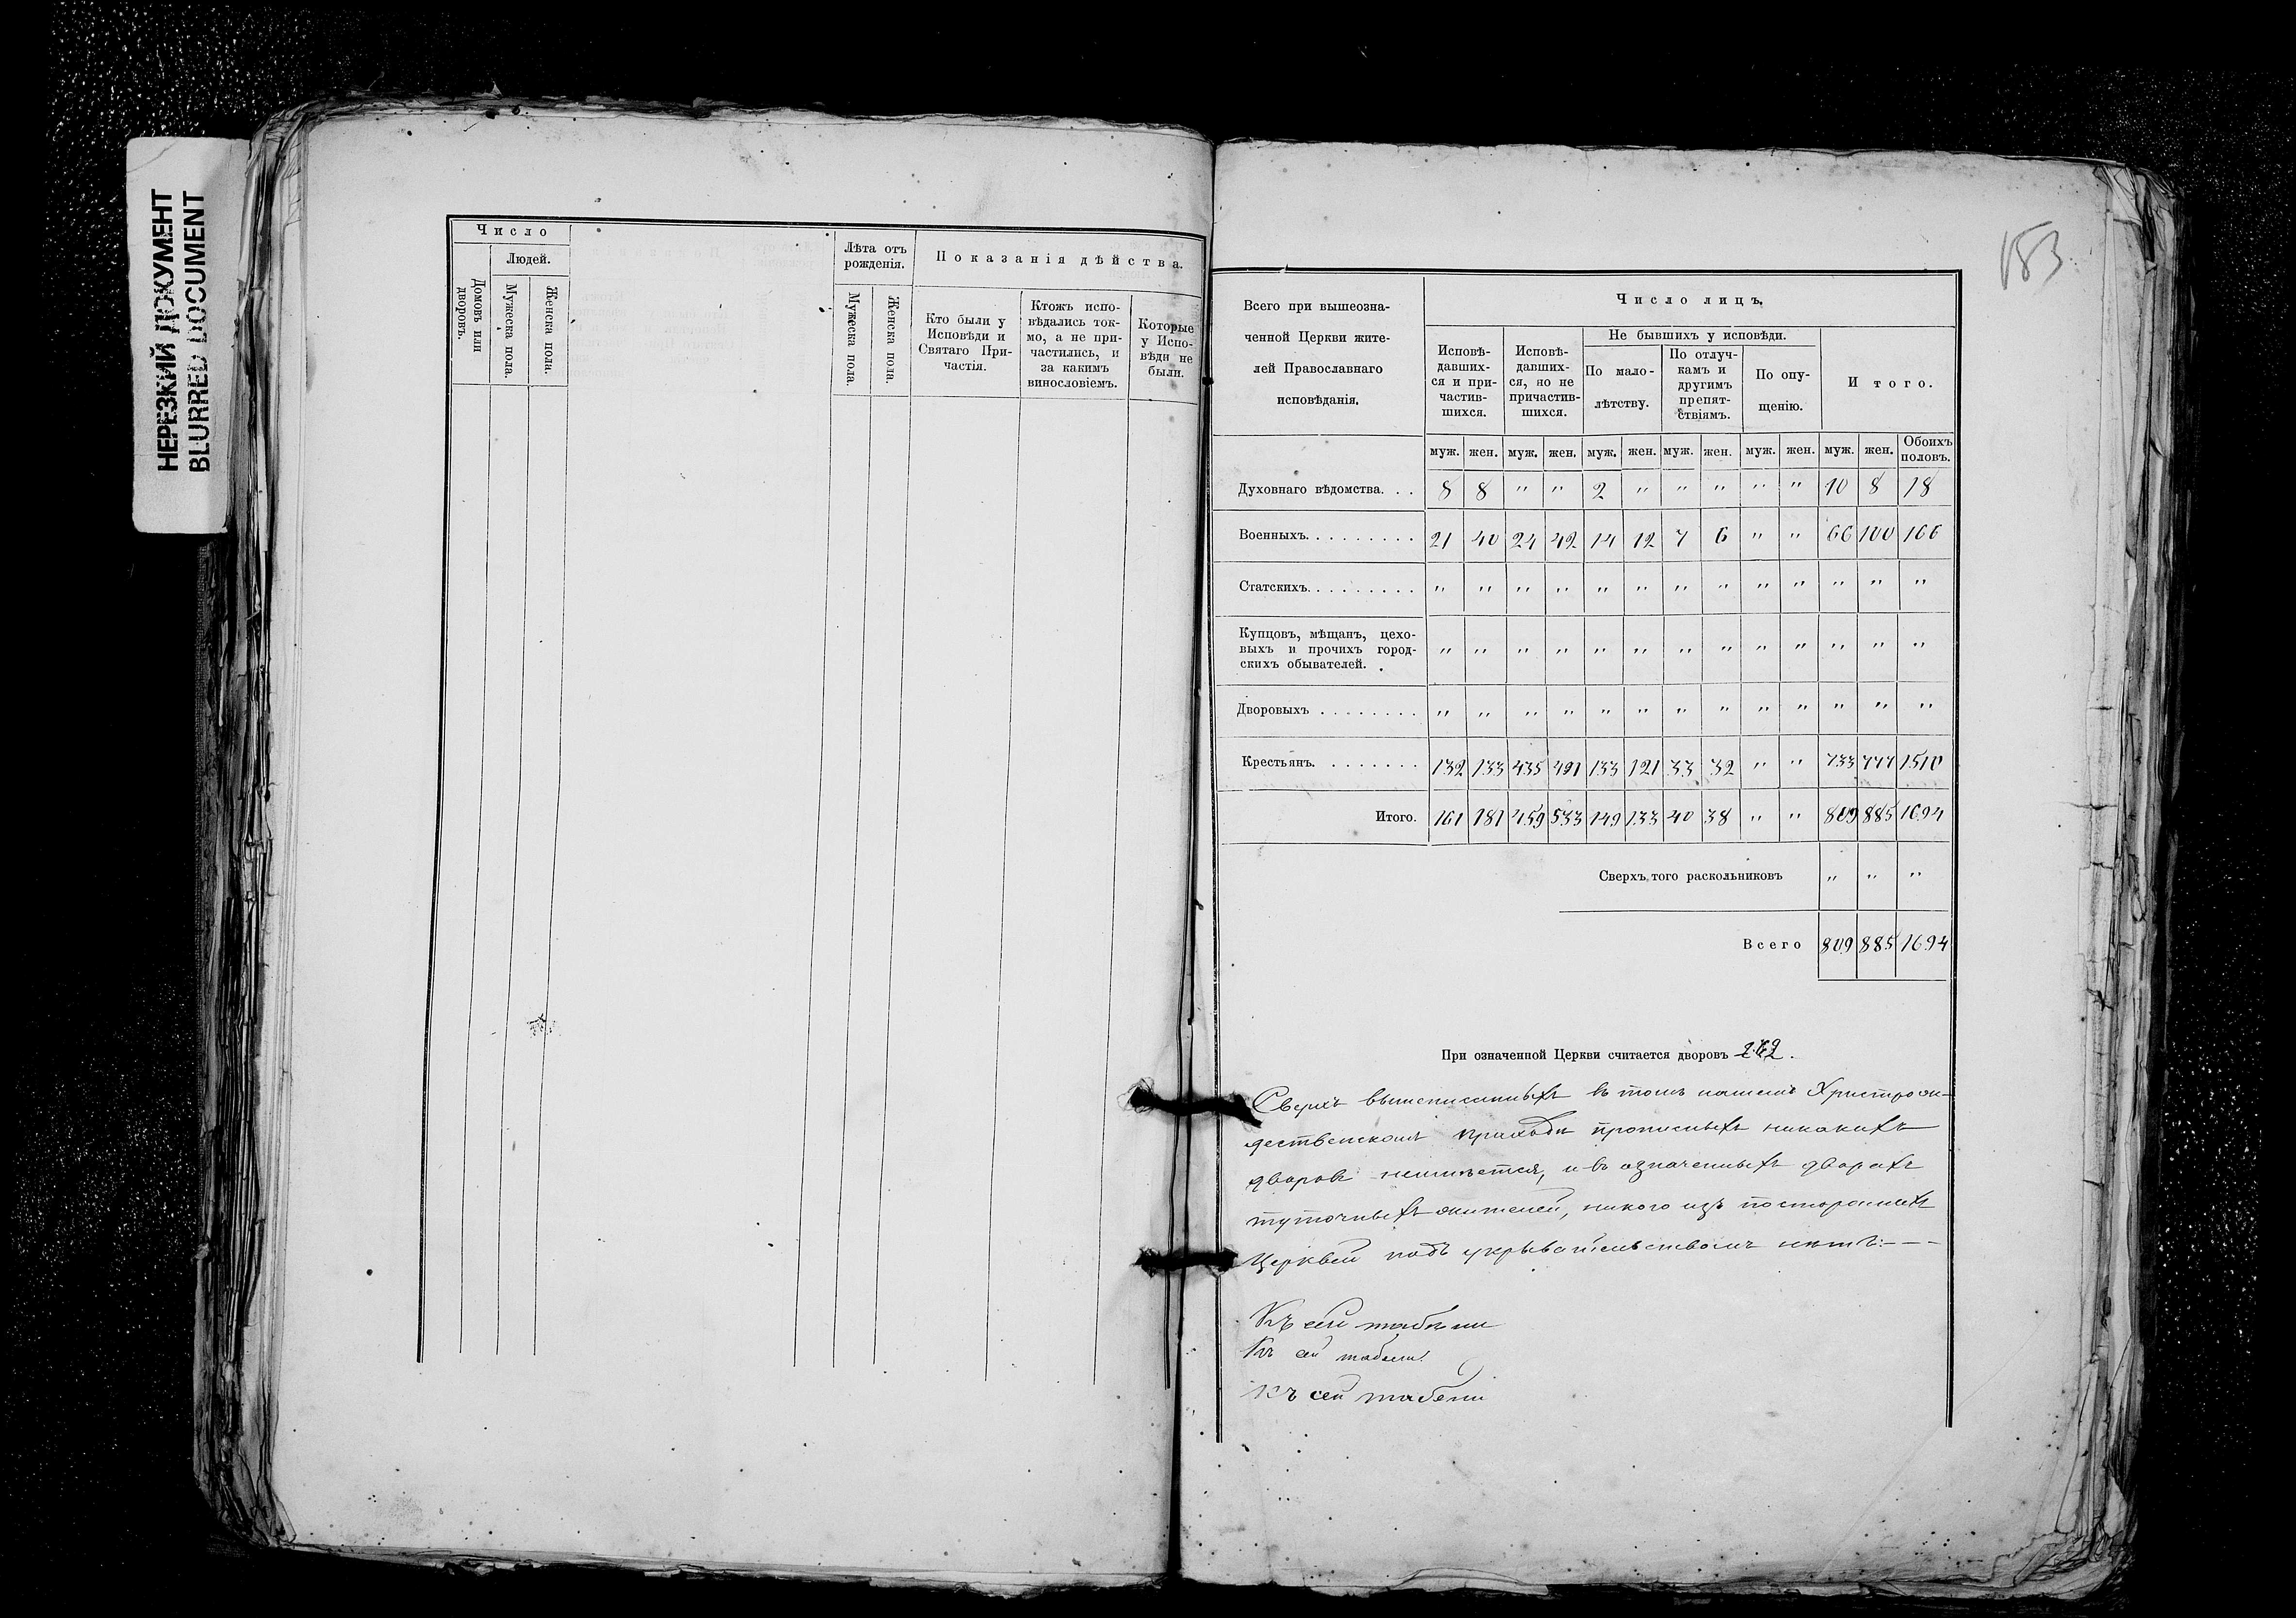 НЕРЕЗКИЙ ДОКУМЕНТ
BLURRED DOCUMENT
Число
Людей.
Домовъ или дворовъ.
Мужеска пола.
Женска пола.
Лѣта отъ
рожденія.
Мужеска пола.
Женска пола.
Показанія дѣйства.
Кто были у
Исповѣди и
Святаго При-
частія.
Ктожъ испо-
вѣдались ток-
мо, а не при-
частились, и
за какимъ
винословіемъ.
Которые
у Испо-
вѣди не
были.
153
Всего при вышеозна-
ченной Церкви жите-
лей Православнаго
исповѣданія.
Число лицъ.
Исповѣ-
давших-
ся и при-
частив-
шихся.
Исповѣ-
давших-
ся, но не
причастив-
шихся.
Не бывшихъ у исповѣди.
По мало-
лѣтству.
По отлуч-
камъ и
другимъ
препят-
ствіямъ.
По опу-
щенію.
Итого.
муж. жен. муж. жен. муж. жен. муж. жен. муж. жен. муж. жен. Обоихъ половъ.
Духовнаго вѣдомства. . . 8 8 " " 2 " " " " " 10 8 18
Военныхъ. . . . . . . . . 21 40 24 42 14 12 7 6 " " 66 100 166
Статскихъ. . . . . . . . . " " " " " " " " " " " " "
Купцовъ, мѣщанъ, цехо-
выхъ и прочихъ город-
скихъ обывателей. . " " " " " " " " " " " " "
Дворовыхъ . . . . . . . . " " " " " " " " " " " " "
Крестьянъ. . . . . . . . 132 133 435 491 133 121 33 32 " " 733 777 1510
Итого. 161 181 459 533 149 133 40 38 " " 809 885 1694
Сверхъ того раскольниковъ " " "
Всего 809 885 1694
При означенной Церкви считается дворовъ
Сверхъ вышеписанныхъ въ томъ нашемъ Христорож-
дественскомъ приходѣ прописныхъ никакихъ
дворовъ неимѣется, и въ означенныхъ дворахъ
туточныхъ жителей, никого изъ постороннихъ
Церквей подъ укрывательствомъ нѣтъ:---
Къ сей табели
Къ сей табели
Къ сей табели